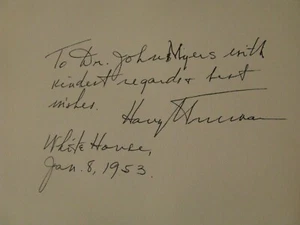 To Dr. John Myers with
kindest regards & best
wishes.
Harry Truman
White House,
Jan. 8, 1953.